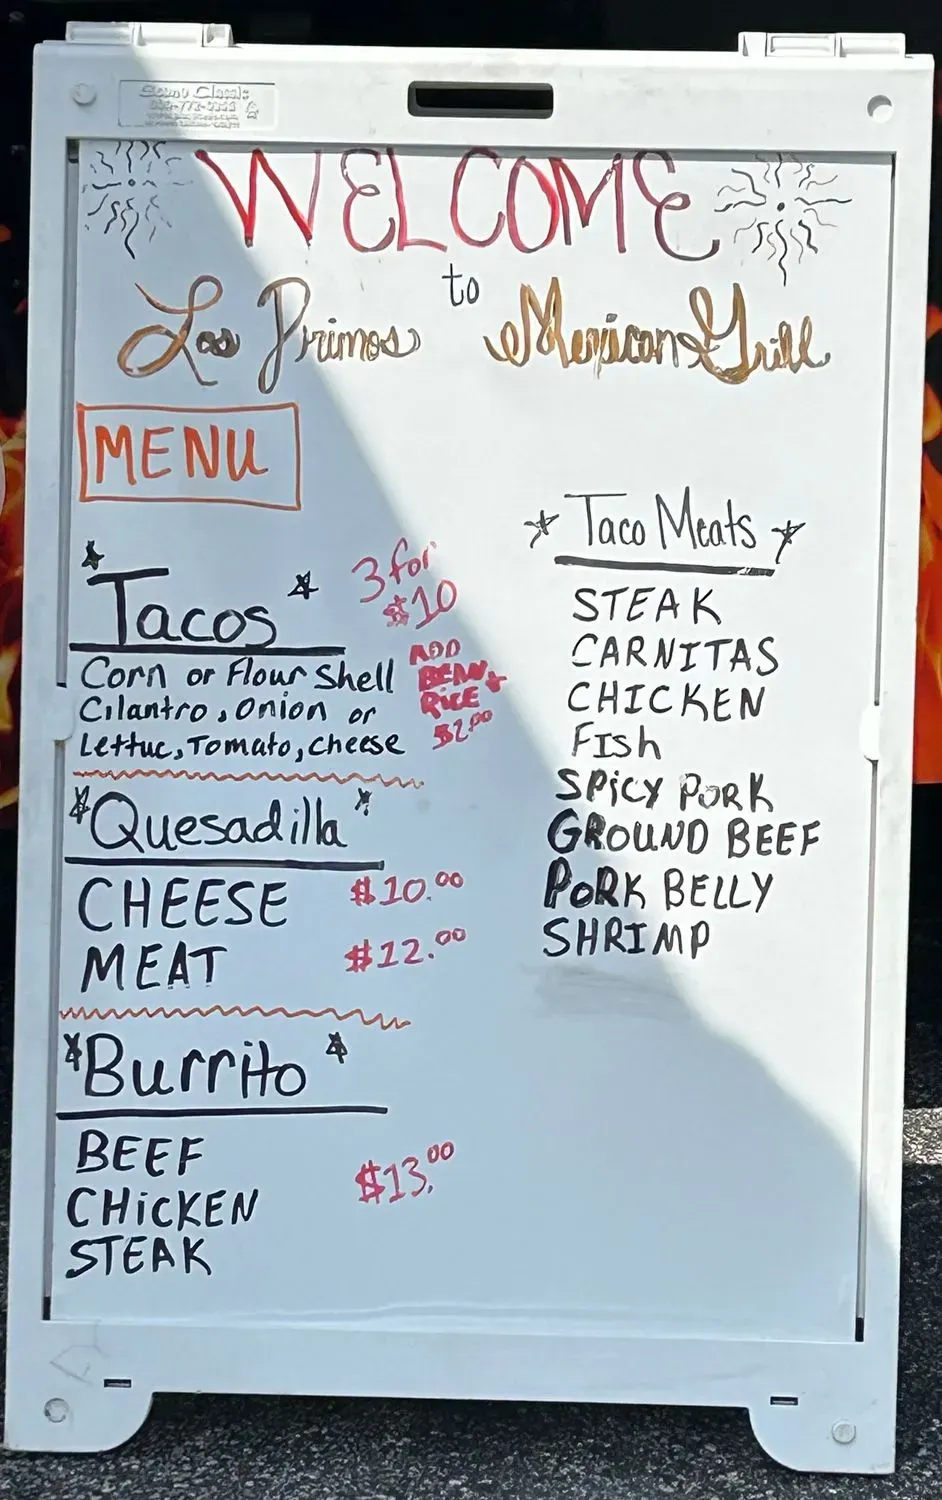 WELCOME
to
Los Primos Mexican Grill
MENU
Tacos
3 for
$10
Corn or Flour Shell
Cilantro, Onion or
Lettuc, Tomato, cheese
ADD
BEAN +
RICE
$2.00
Quesadilla
CHEESE $10.00
MEAT $12.00
Burrito
BEEF
CHICKEN $13.00
STEAK
Taco Meats
STEAK
CARNITAS
CHICKEN
Fish
SPiCY PORK
GROUND BEEF
PORK BELLY
SHRIMP